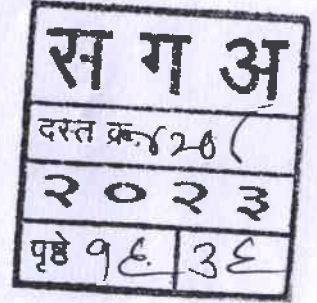 स ग अ
दस्त क्र.
२ ० २ ३
पृष्ठे १६ ३६